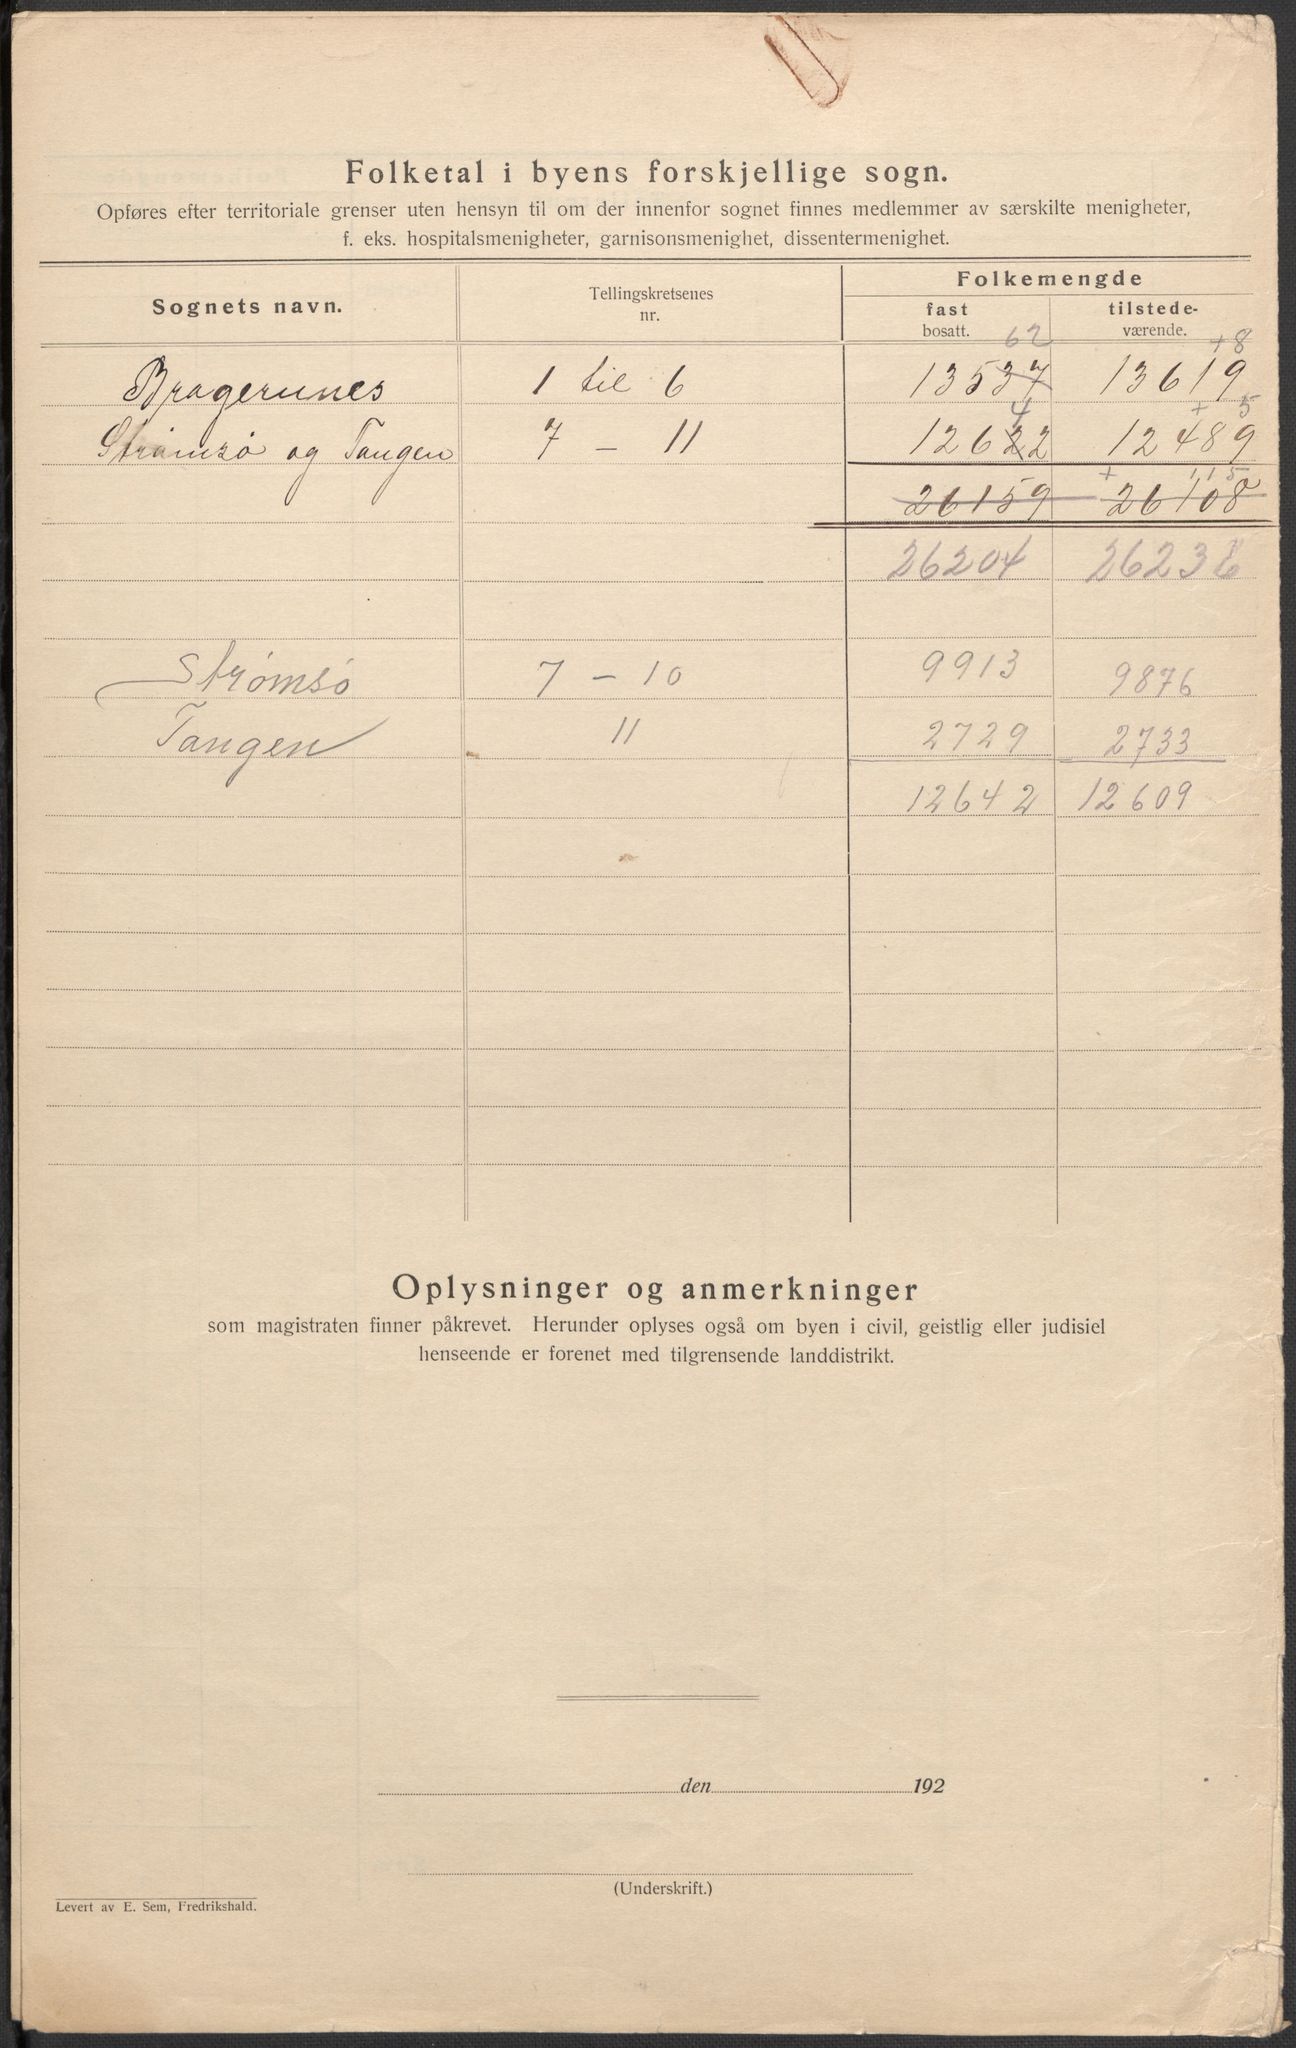 Folketal i byens forskjellige sogn.
Opføres efter territoriale grenser uten hensyn til om der innenfor sognet finnes medlemmer av særskilte menigheter,
f. eks. hospitalsmenigheter, garnisonsmenighet, dissentermenighet.
Sognets navn.
Tellingskretsenes
nr.
Folkemengde
fast
bosatt.
tilstede-
værende.
62 +8
Bragerunes 1 til 6 13537 13619
4 + 5
Strømsø og Tangen 7 – 11 12622 12489
+ 115
26159 26108
26204 2623
Strømsö 7 – 10 9913 9876
Tangen 11 2729 2733
12642 12609
Oplysninger og anmerkninger
som magistraten finner påkrevet. Herunder oplyses også om byen i civil, geistlig eller judisiel
henseende er forenet med tilgrensende landdistrikt.
den 192
(Underskrift.)
Levert av E. Sem, Fredrikshald.